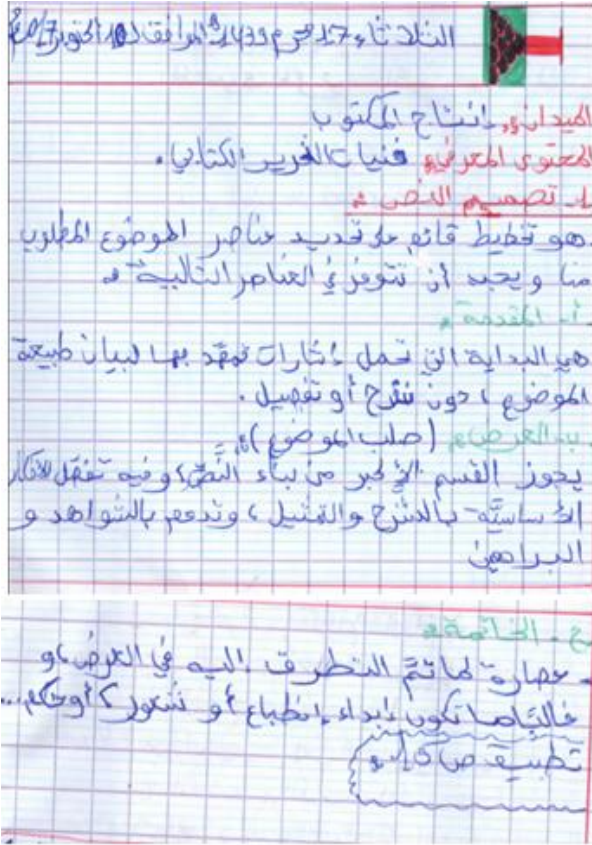 الثلاثاء 17 محرم 1439هـ الموافق لـ 10 أكتوبر 17
الميدان: إنتاج المكتوب
المحتوى المعرفي: فنيات التحرير الكتابي.
1- تصميم النص:
هو تخطيط قائم على تحديد عناصر الموضوع المطلوب
منا ويجب أن تتوفر في العناصر التالية:
أ- المقدمة:
هي البداية التي تحمل إشارات تمهّد بها لبيان طبيعة
الموضوع، دون شرح أو تفصيل.
ب- العرض: (صلب الموضوع):
يحوز القسم الأكبر من بناء النَّصِّ، وفيه تفصّل الأفكار
الأساسيَّة بالشرح والتمثيل، وتدعم بالشواهد و
البراهين
ج- الخاتمة:
- عصارة لما تمَّ التطرق إليه في العرض، و
غالبًا ما تكون إبداء إنطباع أو شعور، أو حكم...
تطبيق ص 15: